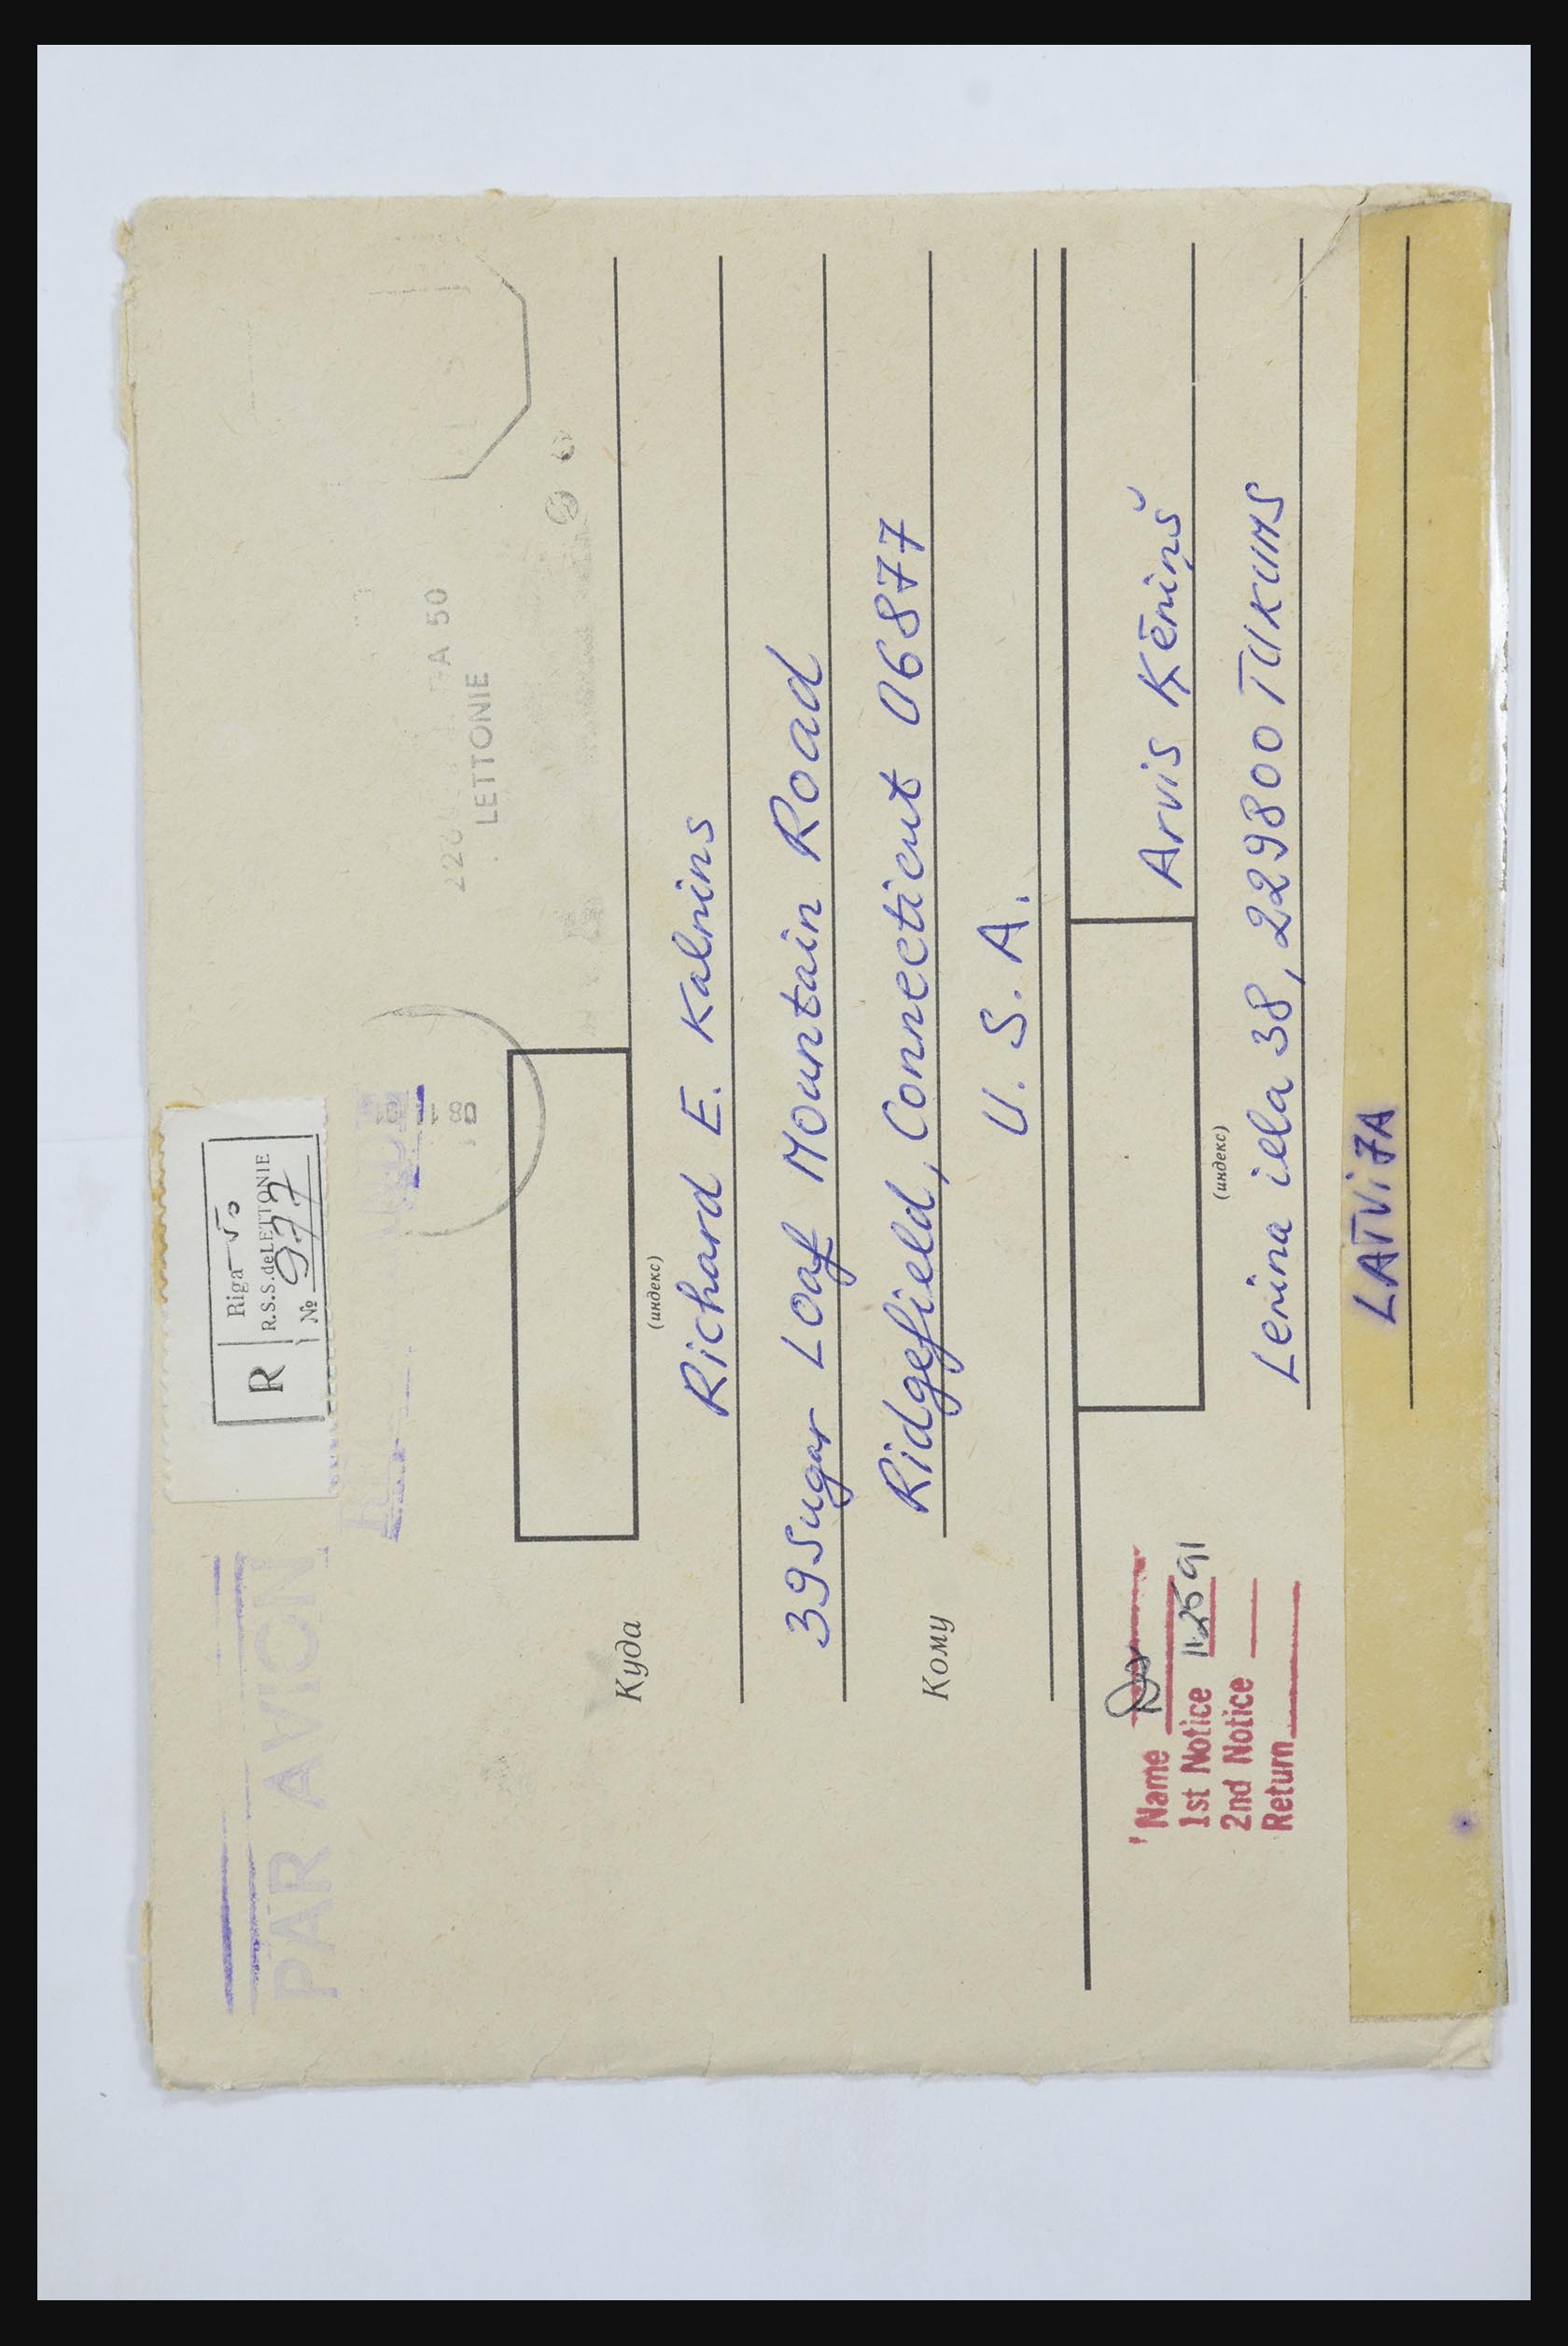 PAR AVION
R
Riga 50
R.S.S. de LETTONIE
№ 977
A 50
LETTONIE
Куда
(индекс)
Richard E. Kalnins
39 Sugar Loaf Mountain Road
Кому
Ridgefield, Connecticut 06877
U. S. A.
Arvis Ķēniņš
(индекс)
Lenina iela 38, 229800 TUKUMS
LATVIJA
Name
1st Notice 11 25 91
2nd Notice
Return